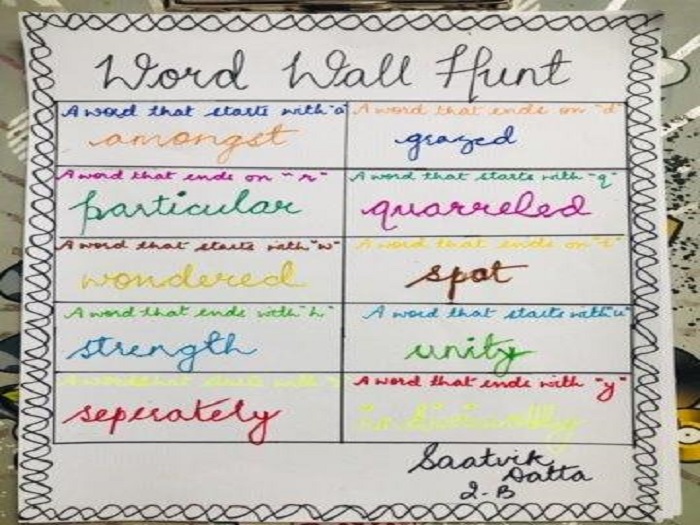 Word Wall Hunt
A word that starts with "a"
amongst
A word that ends on "d"
grazed
A word that ends on "r"
particular
A word that starts with "q"
quarreled
A word that starts with "w"
wondered
A word that ends on "t"
spot
A word that ends with "h"
strength
A word that starts with "u"
unity
A word that starts with
seperately
A word that ends with "y"
Saatvik
Datta
2-B